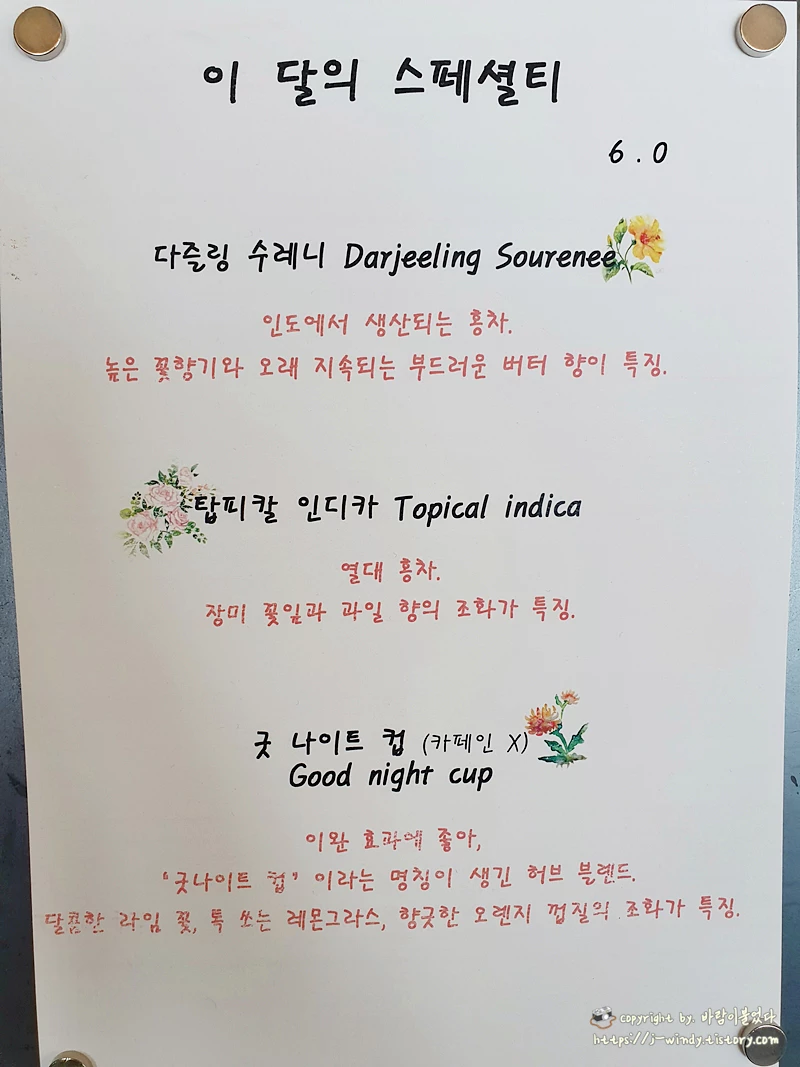 이 달의 스페셜티
6.0
다즐링 수레니 Darjeeling Sourenee
인도에서 생산되는 홍차.
높은 꽃향기와 오래 지속되는 부드러운 버터 향이 특징.
탑피칼 인디카 Topical indica
열대 홍차.
장미 꽃잎과 과일 향의 조화가 특징.
굿 나이트 컵 (카페인 X)
Good night cup
이완 효과에 좋아,
'굿나이트 컵' 이라는 명칭이 생긴 허브 블렌드.
달콤한 라임 꽃, 톡 쏘는 레몬그라스, 향긋한 오렌지 껍질의 조화가 특징.
copyright by. 바람이불었다
https://j-windy.tistory.com